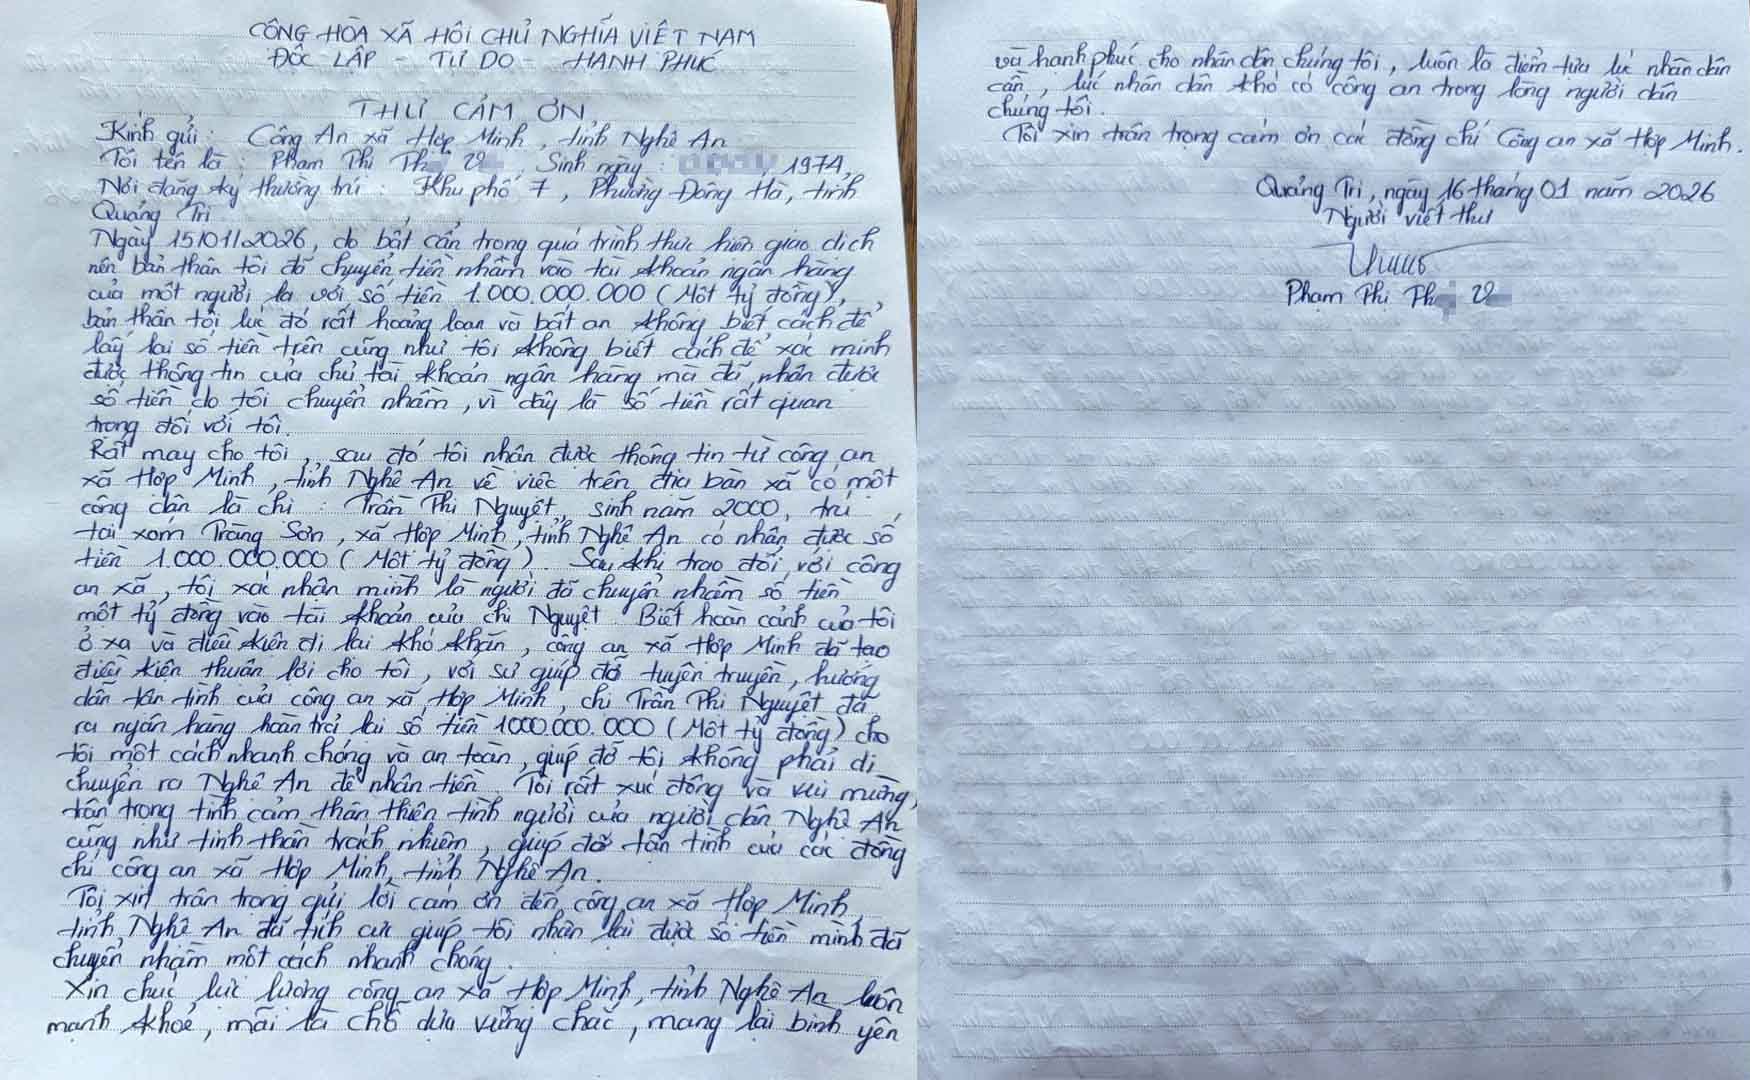 CỘNG HÒA XÃ HỘI CHỦ NGHĨA VIỆT NAM
ĐỘC LẬP - TỰ DO - HẠNH PHÚC
THƯ CẢM ƠN
Kính gửi: Công An xã Hợp Minh, tỉnh Nghệ An
Tôi tên là: Phạm Thị Ph Sinh ngày: 1974,
Nơi đăng ký thường trú: Khu phố 7, Phường Đông Hà, tỉnh
Quảng Trị.
Ngày 15/01/2026, do bất cẩn trong quá trình thực hiện giao dịch
nên bản thân tôi đã chuyển tiền nhầm vào tài khoản ngân hàng
của một người lạ với số tiền 1.000.000.000 (Một tỷ đồng),
bản thân tôi lúc đó rất hoảng loạn và bất an không biết cách để
lấy lại số tiền trên cũng như tôi không biết cách để xác minh
được thông tin của chủ tài khoản ngân hàng mà đã nhận được
số tiền do tôi chuyển nhầm, vì đây là số tiền rất quan
trọng đối với tôi.
Rất may cho tôi, sau đó tôi nhận được thông tin từ công an
xã Hợp Minh, tỉnh Nghệ An về việc trên địa bàn xã có một
công dân là chị: Trần Thị Nguyệt, sinh năm 2000, trú
tại xóm Tràng Sơn, xã Hợp Minh, tỉnh Nghệ An có nhận được số
tiền 1.000.000.000 (Một tỷ đồng). Sau khi trao đổi với công
an xã, tôi xác nhận mình là người đã chuyển nhầm số tiền
một tỷ đồng vào tài khoản của chị Nguyệt. Biết hoàn cảnh của tôi
ở xa và điều kiện đi lại khó khăn, công an xã Hợp Minh đã tạo
điều kiện thuận lợi cho tôi, với sự giúp đỡ tuyên truyền, hướng
dẫn tận tình của công an xã Hợp Minh, chị Trần Thị Nguyệt đã
ra ngân hàng hoàn trả lại số tiền 1000.000.000 (Một tỷ đồng) cho
tôi một cách nhanh chóng và an toàn, giúp đỡ tôi không phải di
chuyển ra Nghệ An để nhận tiền. Tôi rất xúc động và vui mừng,
trân trọng tình cảm thân thiện tình người của người dân Nghệ An
cũng như tinh thần trách nhiệm, giúp đỡ tận tình của các đồng
chí công an xã Hợp Minh, tỉnh Nghệ An.
Tôi xin trân trọng gửi lời cảm ơn đến công an xã Hợp Minh,
tỉnh Nghệ An đã tích cực giúp tôi nhận lại được số tiền mình đã
chuyển nhầm một cách nhanh chóng.
Xin chúc lực lượng công an xã Hợp Minh, tỉnh Nghệ An luôn
mạnh khoẻ, mãi là chỗ dựa vững chắc, mang lại bình yên
và hạnh phúc cho nhân dân chúng tôi, luôn là điểm tựa lúc nhân dân
cần, lúc nhân dân khó có công an trong lòng người dân
chúng tôi.
Tôi xin trân trọng cảm ơn các đồng chí Công an xã Hợp Minh.
Quảng Trị, ngày 16 tháng 01 năm 2026
Người viết thư
Phạm Thị Ph